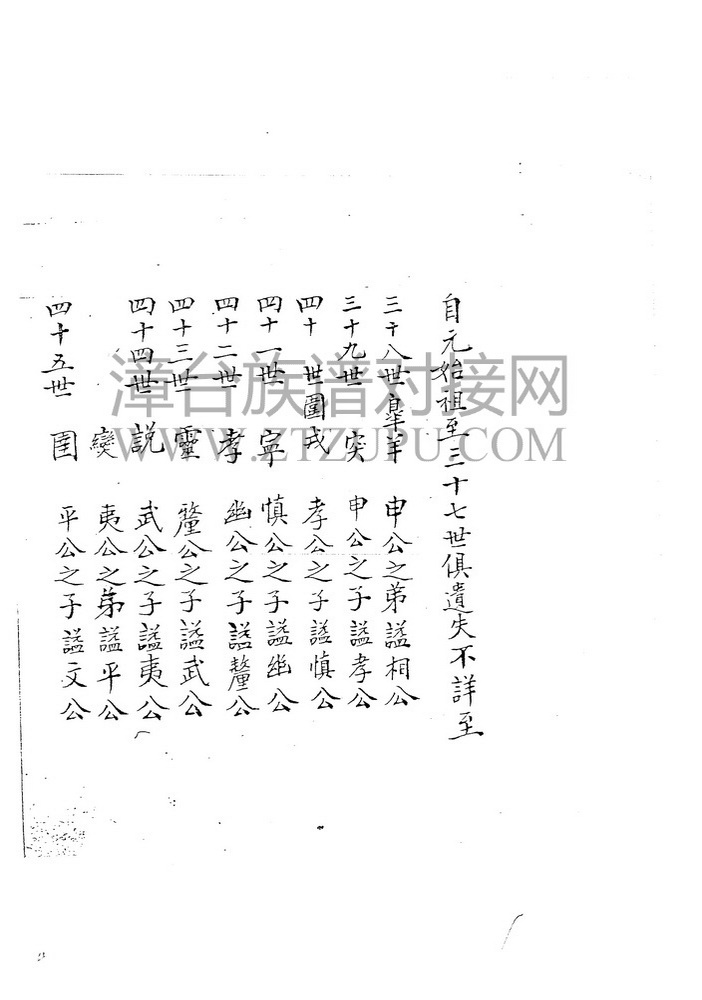 自元始祖至三十七世俱遺失不詳至
三十八世皋羊 申公之弟謚相公
三十九世 突 申公之子謚孝公
四十 世圉戎 孝公之子謚慎公
四十一世 寧 慎公之子謚幽公
四十二世 孝 幽公之子謚釐公
四十三世 靈 釐公之子謚武公
四十四世 説 武公之子謚夷公
燮 夷公之弟謚平公
四十五世 圉 平公之子謚文公
漳台族谱对接网
WWW.ZTZUPU.COM